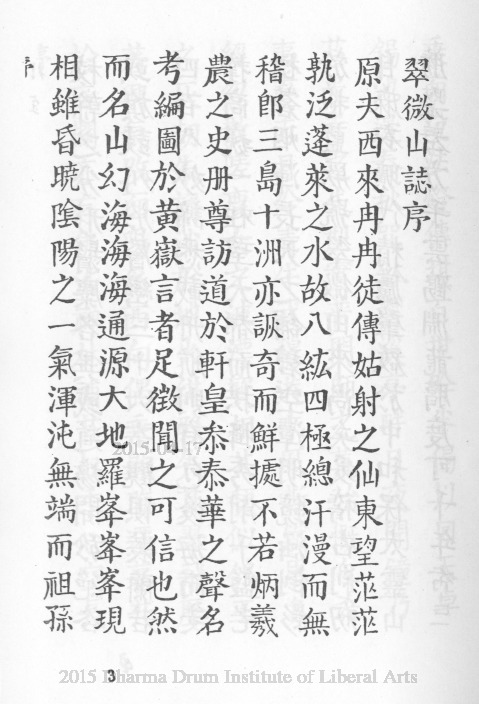 翠微山誌序
原夫西來冉冉徒傳姑射之仙東望茫茫
孰泛蓬萊之水故八紘四極總汗漫而無
稽卽三島十洲亦詼奇而鮮據不若炳羲
農之史册尊訪道於軒皇叅泰華之聲名
考編圖於黃嶽言者足徵聞之可信也然
而名山幻海海海通源大地羅峯峯峯現
相雖昏曉陰陽之一氣渾沌無端而祖孫
序
2015-09-17
3
2015 Dharma Drum Institute of Liberal Arts